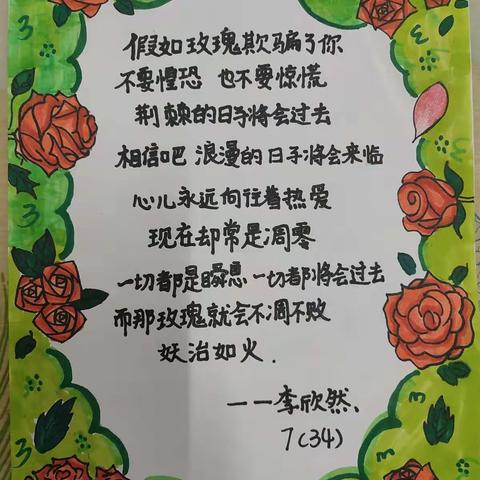 假如玫瑰欺骗了你
不要惶恐 也不要惊慌
荆棘的日子将会过去
相信吧 浪漫的日子将会来临
心儿永远向往着热爱
现在却常是凋零
一切都是瞬息 一切都将会过去
而那玫瑰就会不凋不败
妖治如火.
——李欣然、
7(34)